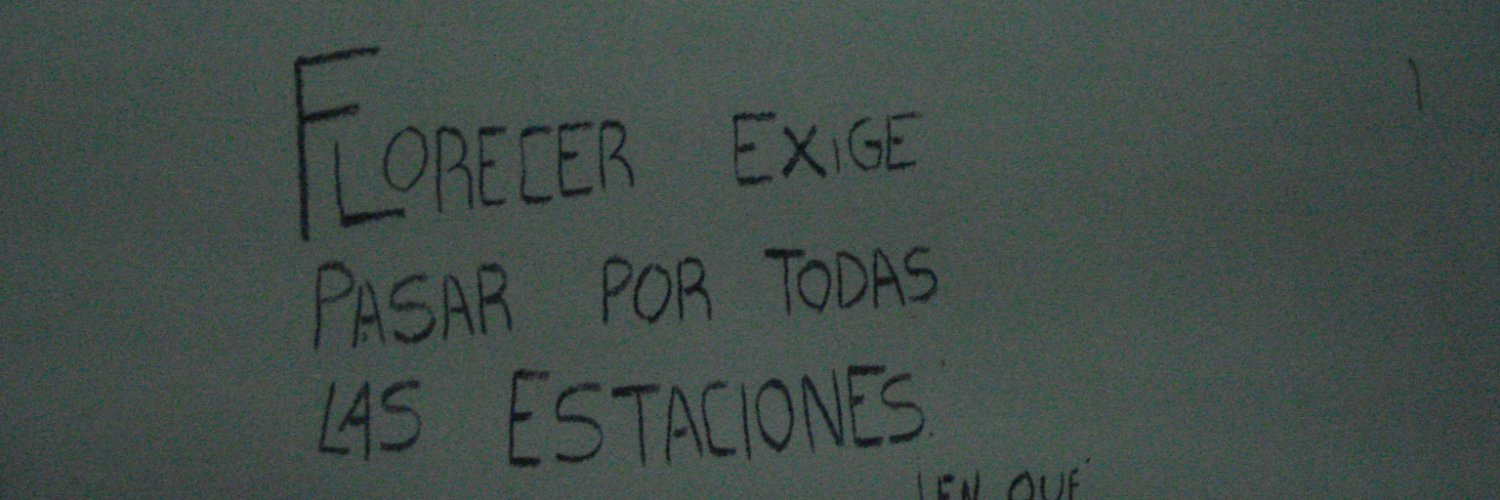 FLORECER EXIGE
PASAR POR TODAS
LAS ESTACIONES.
EN QUE